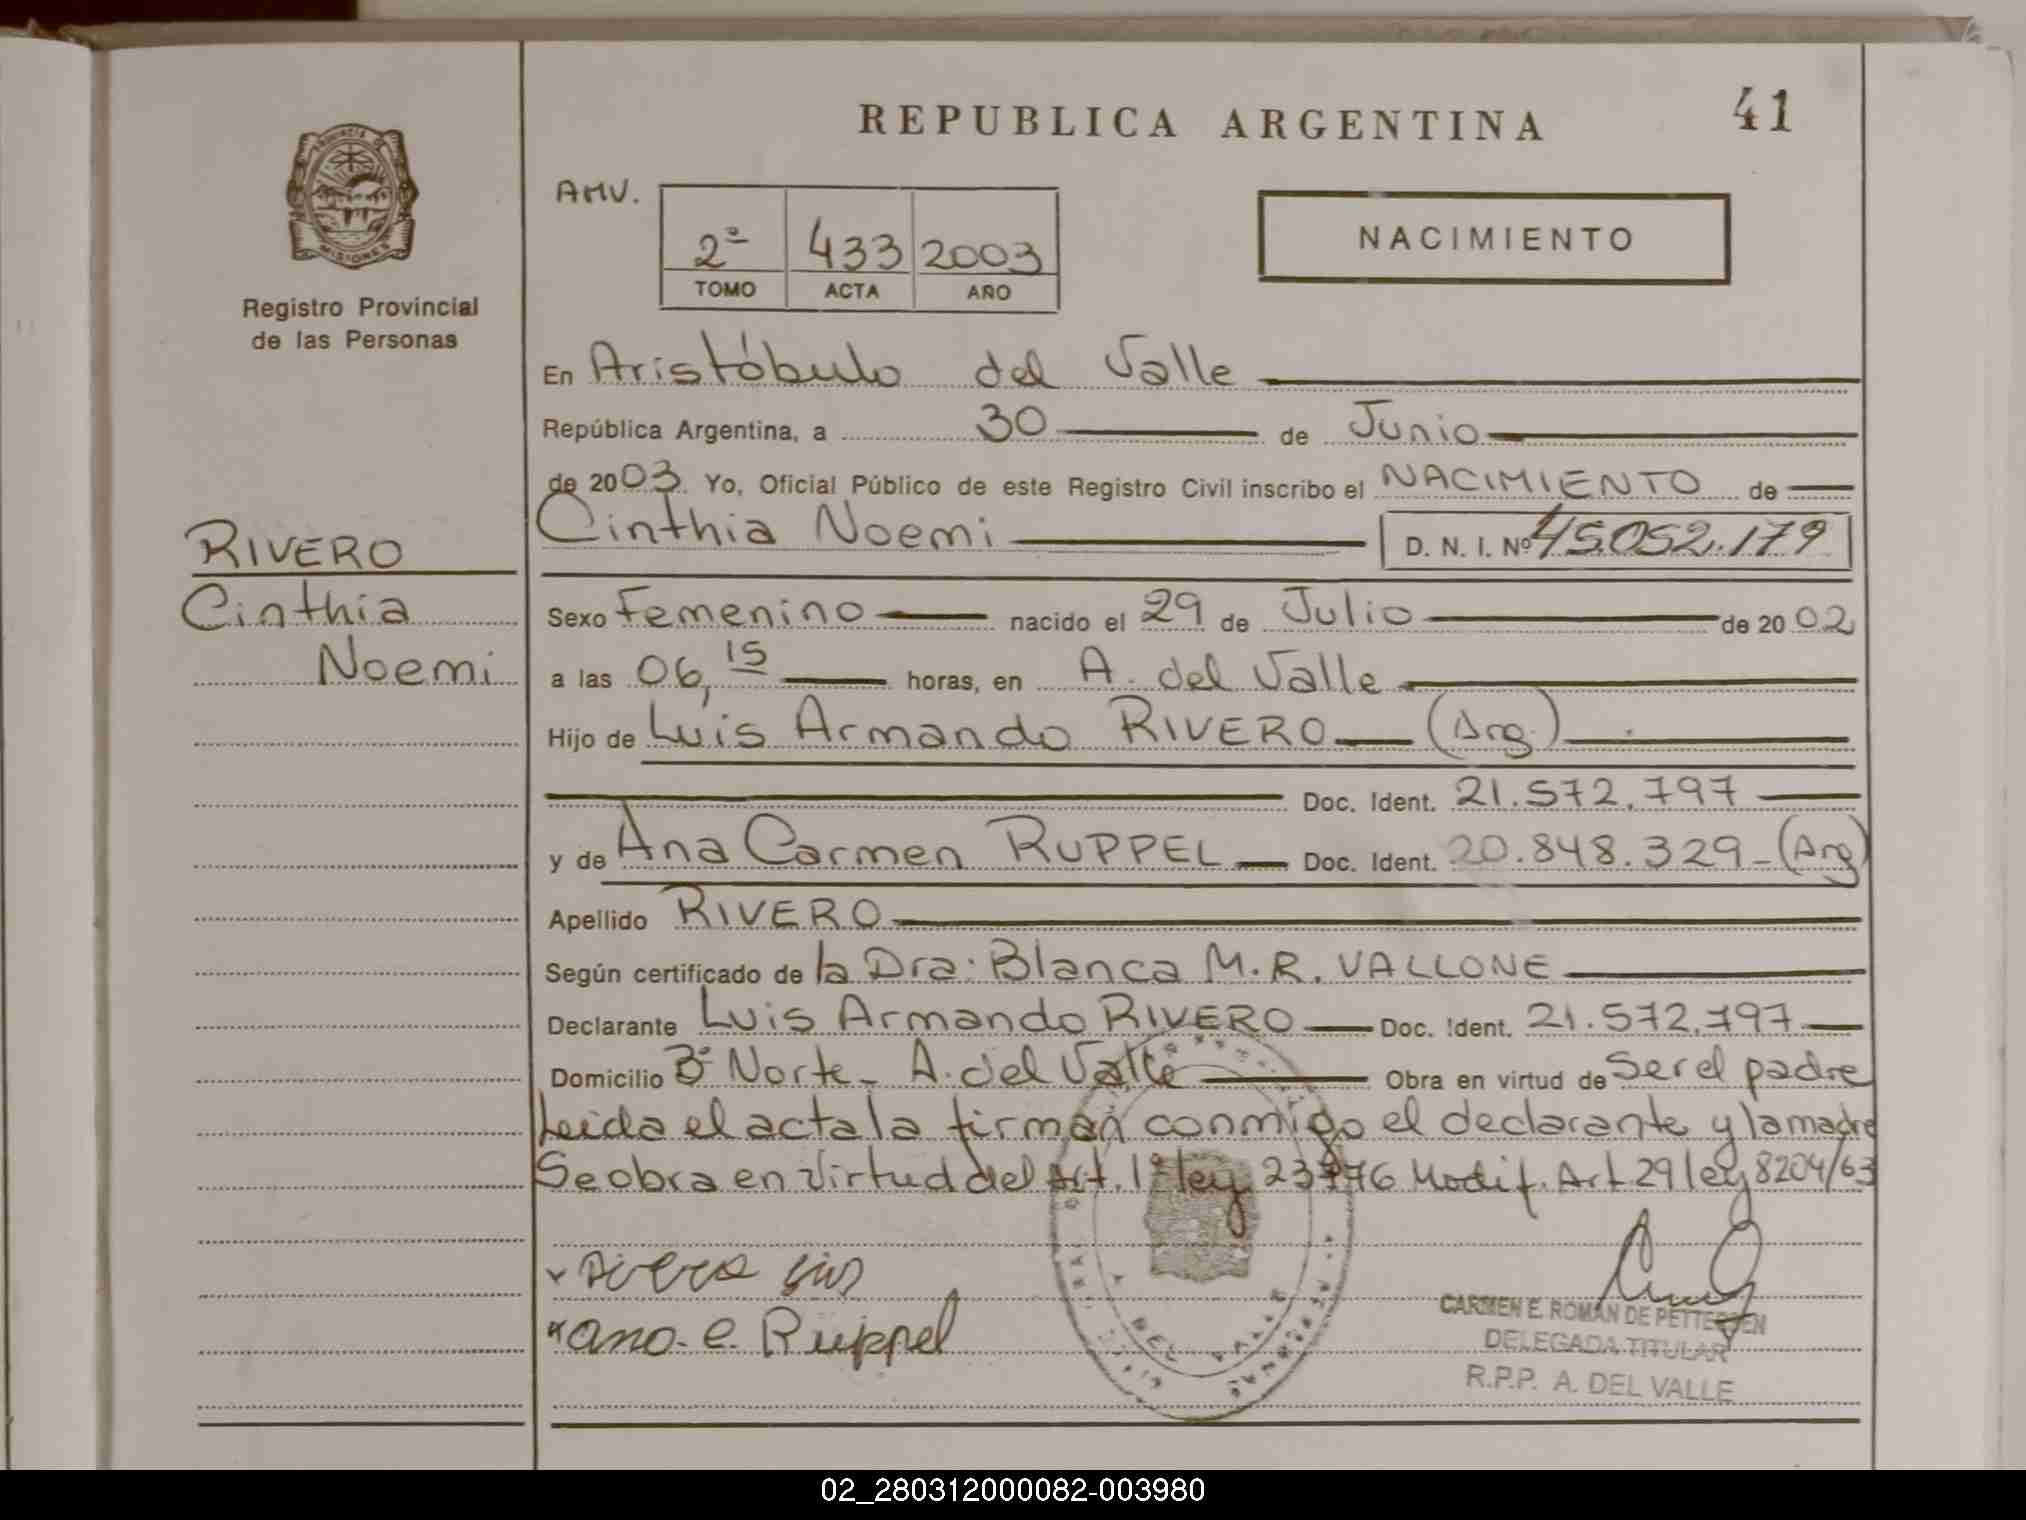 REPUBLICA ARGENTINA
41
PROVINCIA DE
MISIONES
Registro Provincial
de las Personas
AMV.
2º 433 2003
TOMO ACTA AÑO
NACIMIENTO
En Aristóbulo del Valle
República Argentina, a 30 de Junio
de 2003. Yo, Oficial Público de este Registro Civil inscribo el NACIMIENTO de
Cinthia Noemi D. N. I. Nº 45.052.179
RIVERO
Cinthia
Noemi
Sexo Femenino nacido el 29 de Julio de 2002
a las 06,15 horas, en A. del Valle
Hijo de Luis Armando RIVERO (Arg.)
Doc. Ident. 21.572.797
y de Ana Carmen RUPPEL Doc. Ident. 20.848.329 - (Arg)
Apellido RIVERO
Según certificado de la Dra: Blanca M.R. VALLONE
Declarante Luis Armando RIVERO Doc. Ident. 21.572.797
Domicilio Bº Norte - A. del Valle Obra en virtud de ser el padre
Leida el acta la firman conmigo el declarante y la madre
Se obra en virtud del Art. 1º ley 23776 Modif. Art 29 ley 8204/63
Rivero Luis
Ana. C. Ruppel
A DEL VALLE
CARMEN E. ROMAN DE PETTERSEN
DELEGADA TITULAR
R.P.P. A. DEL VALLE
02_280312000082-003980